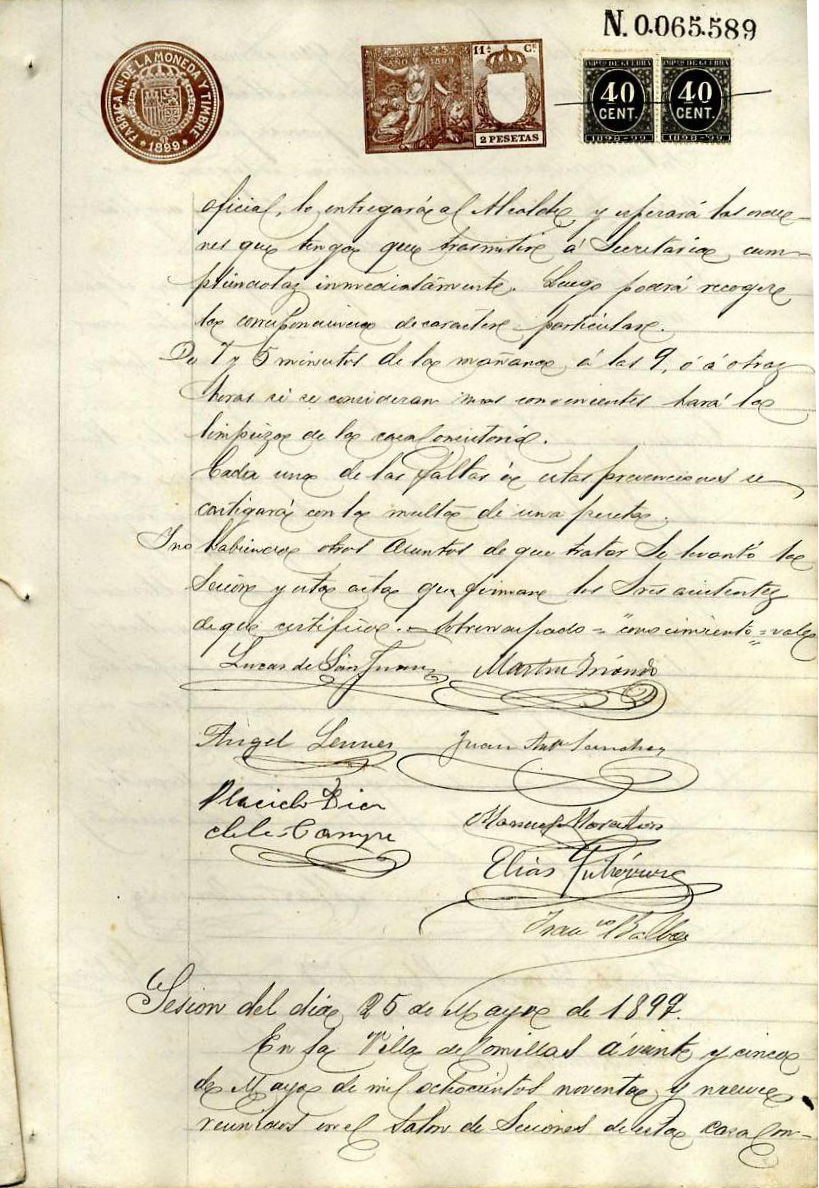 N. 0.065.589
FABRICA Nal. DE LA MONEDA Y TIMBRE
1899
AÑO 1899
11ª Cª
2 PESETAS
IMPto DE GUERRA
40
CENT.
1898-99
IMPto DE GUERRA
40
CENT.
1898-99
oficial, la entregará al Alcalde y esperará las orde-
nes que tenga que trasmitir á Secretaria, cum-
pliendolas inmediatamente. Luego podrá recoger
la correspondencia de caracter particular.
De 7 y 5 minutos de la mañana, á las 9, ó á otras
horas si se consideran mas convenientes hará la
limpieza de la casa consistorial.
Cada una de las faltas de estas prevenciones se
castigará con la multa de una peseta.
Y no habiendo otros asuntos de que tratar se levantó la
Sesión y esta acta que firman los Sres asistentes
de que certifico. Sobreraspado = "conocimiento" = vale
Lucas de San Juan Martin
Angel Juan Anto Sanchez
Placido Diez
de la Campa
Elias Gutierrez
Franco Balboa
Sesion del dia 25 de Mayo de 1899.
En la Villa de Comillas á veinte y cinco
de Mayo de mil ochocientos noventa y nueve
reunidos en el Salon de Sesiones de esta casa Con-